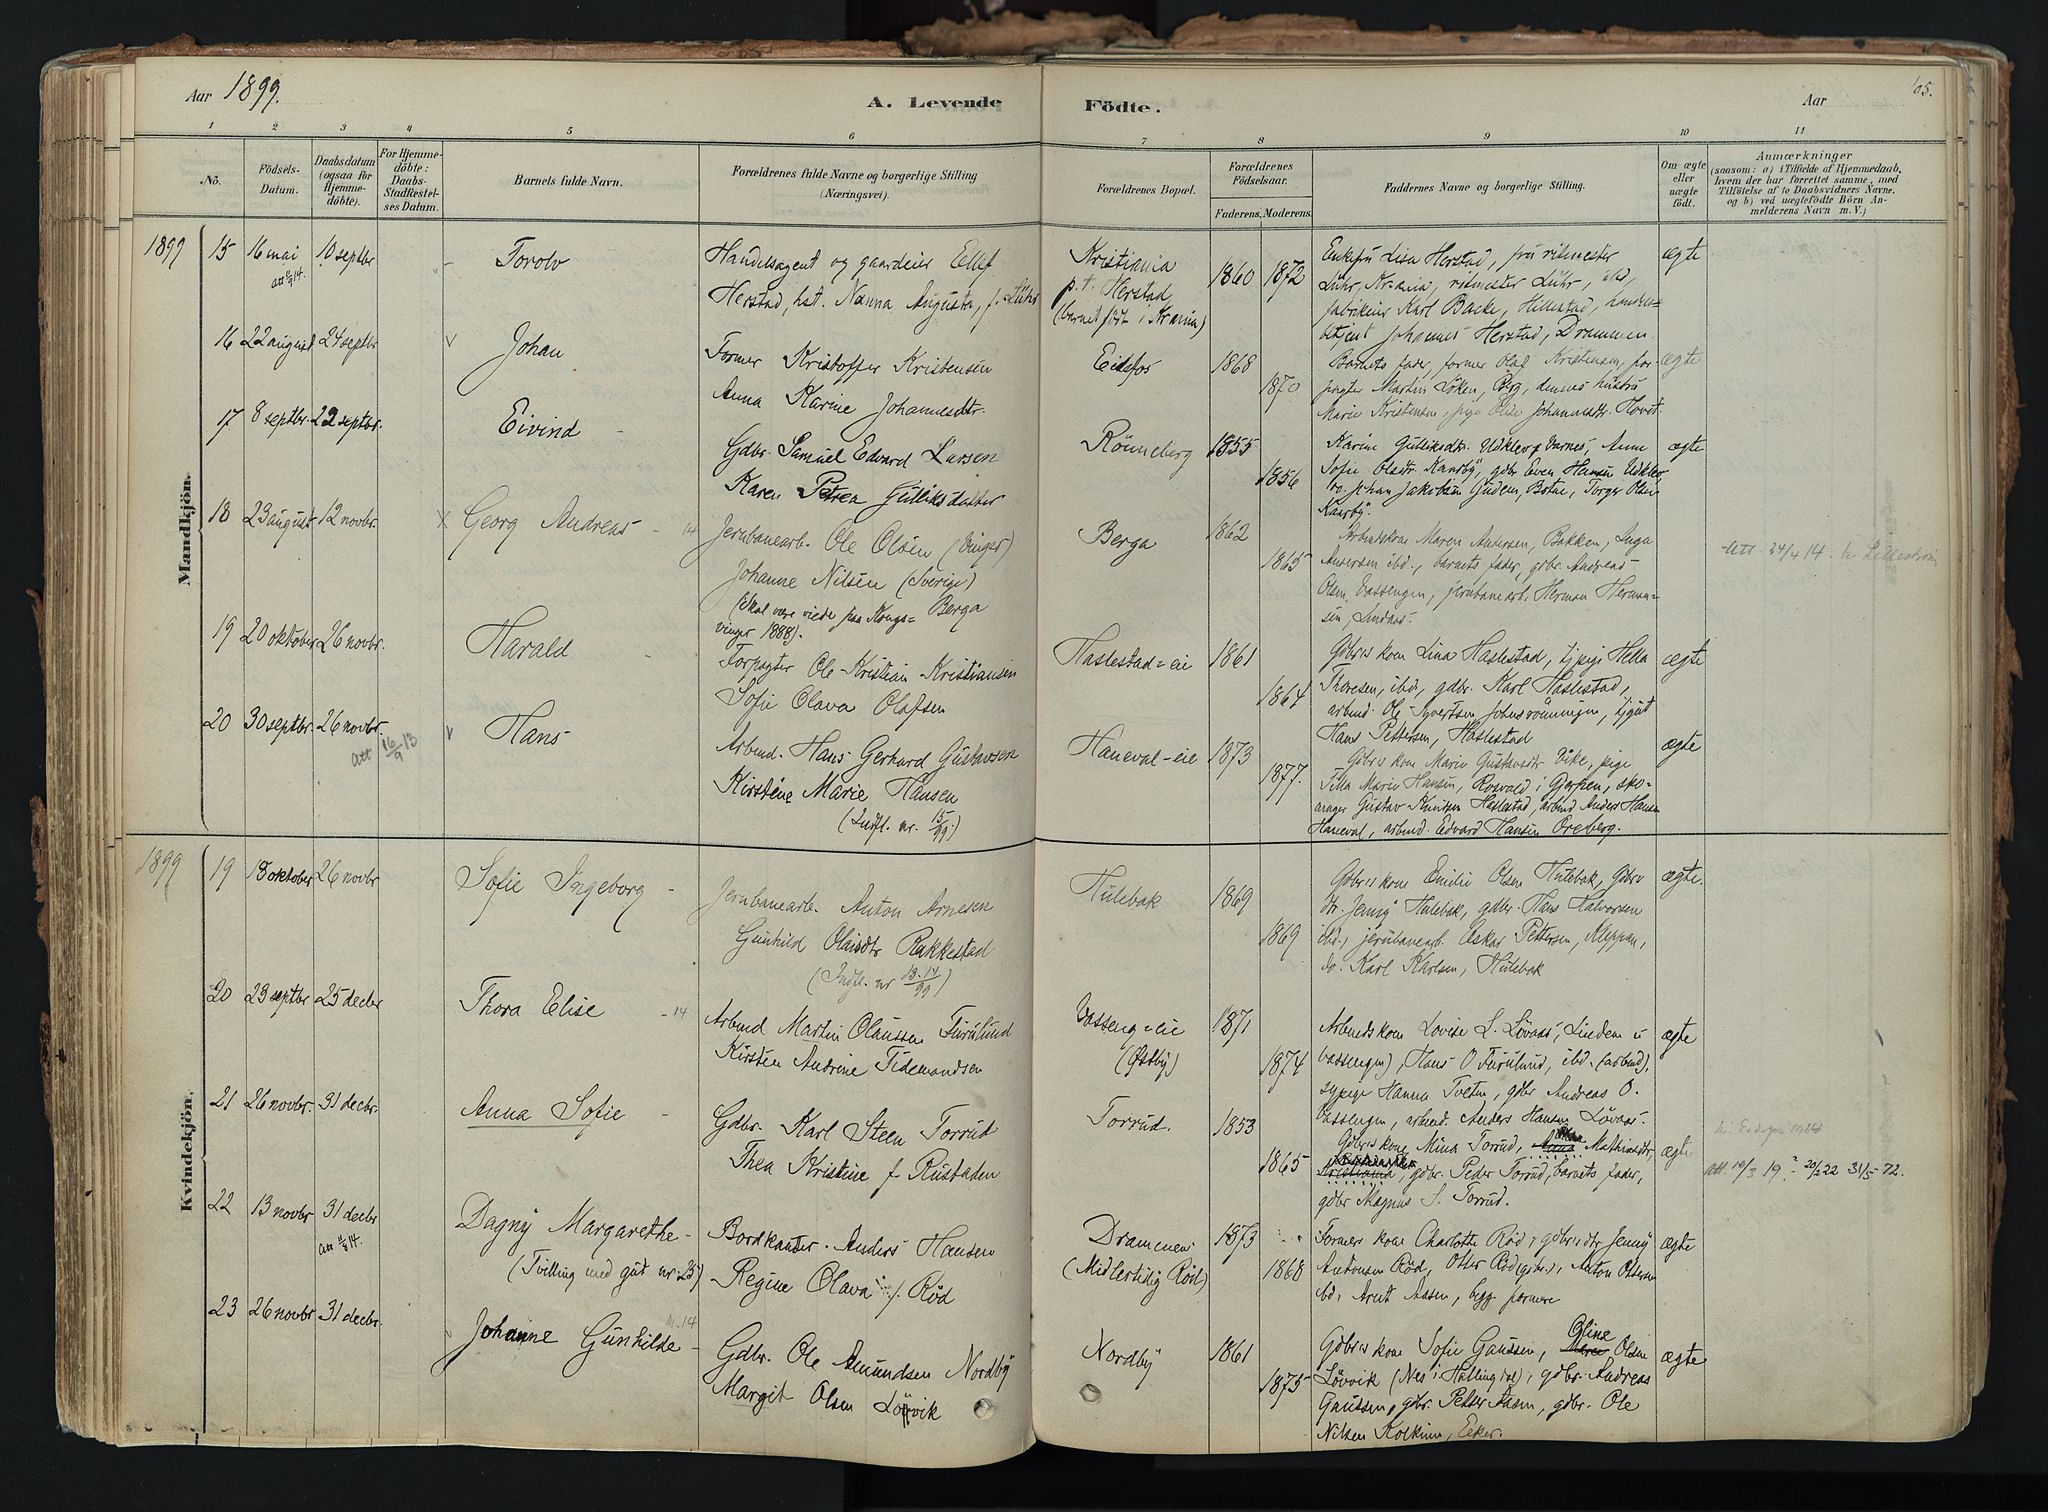 Aar 1899.
A. Levende Födte.
Aar
105.
1 2 3 4 5 6 7 8 9 10 11
No.
Födsels-Datum.
Daabsdatum (ogsaa for Hjemmedöbte).
For Hjemmedöbte: Daabs-Stadfæstelses Datum.
Barnets fulde Navn.
Forældrenes fulde Navne og borgerlige Stilling (Næringsvei).
Forældrenes Bopæl.
Forældrenes Födselsaar.
Faderens. Moderens.
Faddernes Navne og borgerlige Stilling.
Om ægte eller uægte födt.
Anmærkninger
(saasom: a) i Tilfælde af Hjemmedaab, hvem der har forrettet samme, med Tilföielse af to Daabsvidners Navne. og b) ved uægtefödte Börn Anmelderens Navn m. V.)
Mandkjön.
1899 15 16 mai 10 septbr Torolv
Handelsagent og gaardeier Ellef
Herstad, hst. Nanna Augusta, f. Lühr
Kristiania
p.t. Herstad
(barnet født i Kr.ania)
1860 1872
Enkefru Lisa Herstad, fru ritmester
Lühr, Kr.ania, ritmester Lühr, ibd,
fabrikeier Karl Backe, Hillestad, handels=
betjent Johannes Herstad, Drammen.
ægte
16 22 august 24 septbr v Johan
Former Kristoffer Kristensen
Anna Karine Johannesdtr.
Eidsfos 1868 1870
Barnets fader, former Olaf Kristensen, for-
pagter Martin Løken, Berg, dennes hustru
Marie Kristensen, pige Elise Johannesdtr. Hovet.
ægte
17 8 septbr. 22 septbr. Eivind
Gdbr. Samuel Edvard Larsen
Karen Petrea Gulliksdatter
Rönneberg 1855 1856
ægte
18 23 august 12 novbr. x Georg Andreas - 14
Jernbanearb. Ole Olsen (Vinger)
Johanne Nilsen (Sverige)
(Skal være viede paa Kongs= Berga
vinger 1888).
Berga 1862 1865
Arbmdskone Maren Andersen, Bakken, Inga
Andersen ibd., barnets fader, gdbr. Andreas
Olsen Vassengen, jernbanearb. Herman Herman=
sen, Lindaas.
Att. 24/4 14.
19 20 oktober 26 novbr. Harald
Forpagter Ole Kristian Kristiansen
Sofie Olava Olafsen
Haslestad=eie 1861 1864
Gdbrs kone Lina Haslestad, tj.pige Hella
Thoresen, ibd, gdbr. Karl Haslestad,
arbmd. Ole Syvertsen Johnsrönningen, tj.gut
Hans Pettersen, Haslestad
ægte
20 30 septbr. 26 novbr. v Hans
Att 16/9 13
Arbmd. Hans Gerhard Gustavsen
Kirstine Marie Hansen
(Indfl. nr. 15/99)
Haneval-eie 1873 1877.
Gdbrs kone Marie Gustavsdtr Vike, pige
Tilla Marie Hansen, Rosvald i Gjerpen, sko=
mager Gustav Knudsen Haslestad, arbmd Anders Hansen
Haneval, arbmd. Edvard Hansen Oreberg.
ægte
Kvindekjön.
1899 19 18 oktober 26 novbr Sofie Ingeborg -
Jernbanearb. Anton Arnesen
Gunhild Olaisdtr Rakkestad
(Indfl. nr 13-14/99)
Hulebak 1869 1869
Gdbrs kone Emilie Olsen Hulebak, Gdbr
dtr. Jenny Hulebak, gdbr. Hans Halvorsen
ibd., jernbanearb. Oskar Pettersen, Kleppan,
do. Karl Karlsen, Hulebak
ægte.
20 23 septbr 25 decbr Thora Elise - 14
Arbmd Martin Olaussen Furulund
Kirsten Andrine Tidemandsen
Vasseng=eie
(Østby)
1871 1874
Arbmdskone Lovise L. Løvaas, Linden u
Vassengen), Hans O Furulund, ibd. (arbmd),
sypige Hanna Tveten, gdbr Andreas O.
Vassengen, arbmd. Anders Hansen Løvaas.
ægte
21 26 novbr. 31 decbr. Anna Sofie -
Gdbr. Karl Steen Torrud
Thea Kristine f. Rustaden
Torrud. 1853 1865
Gdbrs kone Mina Torrud, Mathisesdtr.
gdbr. Peder Torrud, barnets fader,
gdbr Magnus S. Torrud.
ægte
Att. 19/3 19 20/2 22 31/5-72.
22 13 novbr 31 decbr
Att 11/8 14.
Dagny Margarethe -
(Tvilling med gut nr. 25)
Bordkanter. Anders Hansen
Regine Olava f. Rød
Drammen
(Midlertidig Rød)
1873 1868
Formers kone Charlotte Rød, gdbrsdtr Jenny
Andersen Rød, Otter Rød (gdbr.), Anton Ottersen
ibd, Arnt Aasen, begge formere
ægte
23 26 novbr 31 decbr. v Johanne Gunhilde -
14
Gdbr. Ole Amundsen Nordby
Margit Olsen Løvvik
Nordby 1861 1875
Gdbrs kone Sofie Gaussen, Oline Olsen
Løvvik (Nes i Hallingdal), gdbr. Andreas
Gaussen, gdbr. Petter Aasen, gdbr. Ole
Nilsen Kolkinn, Eker.
ægte